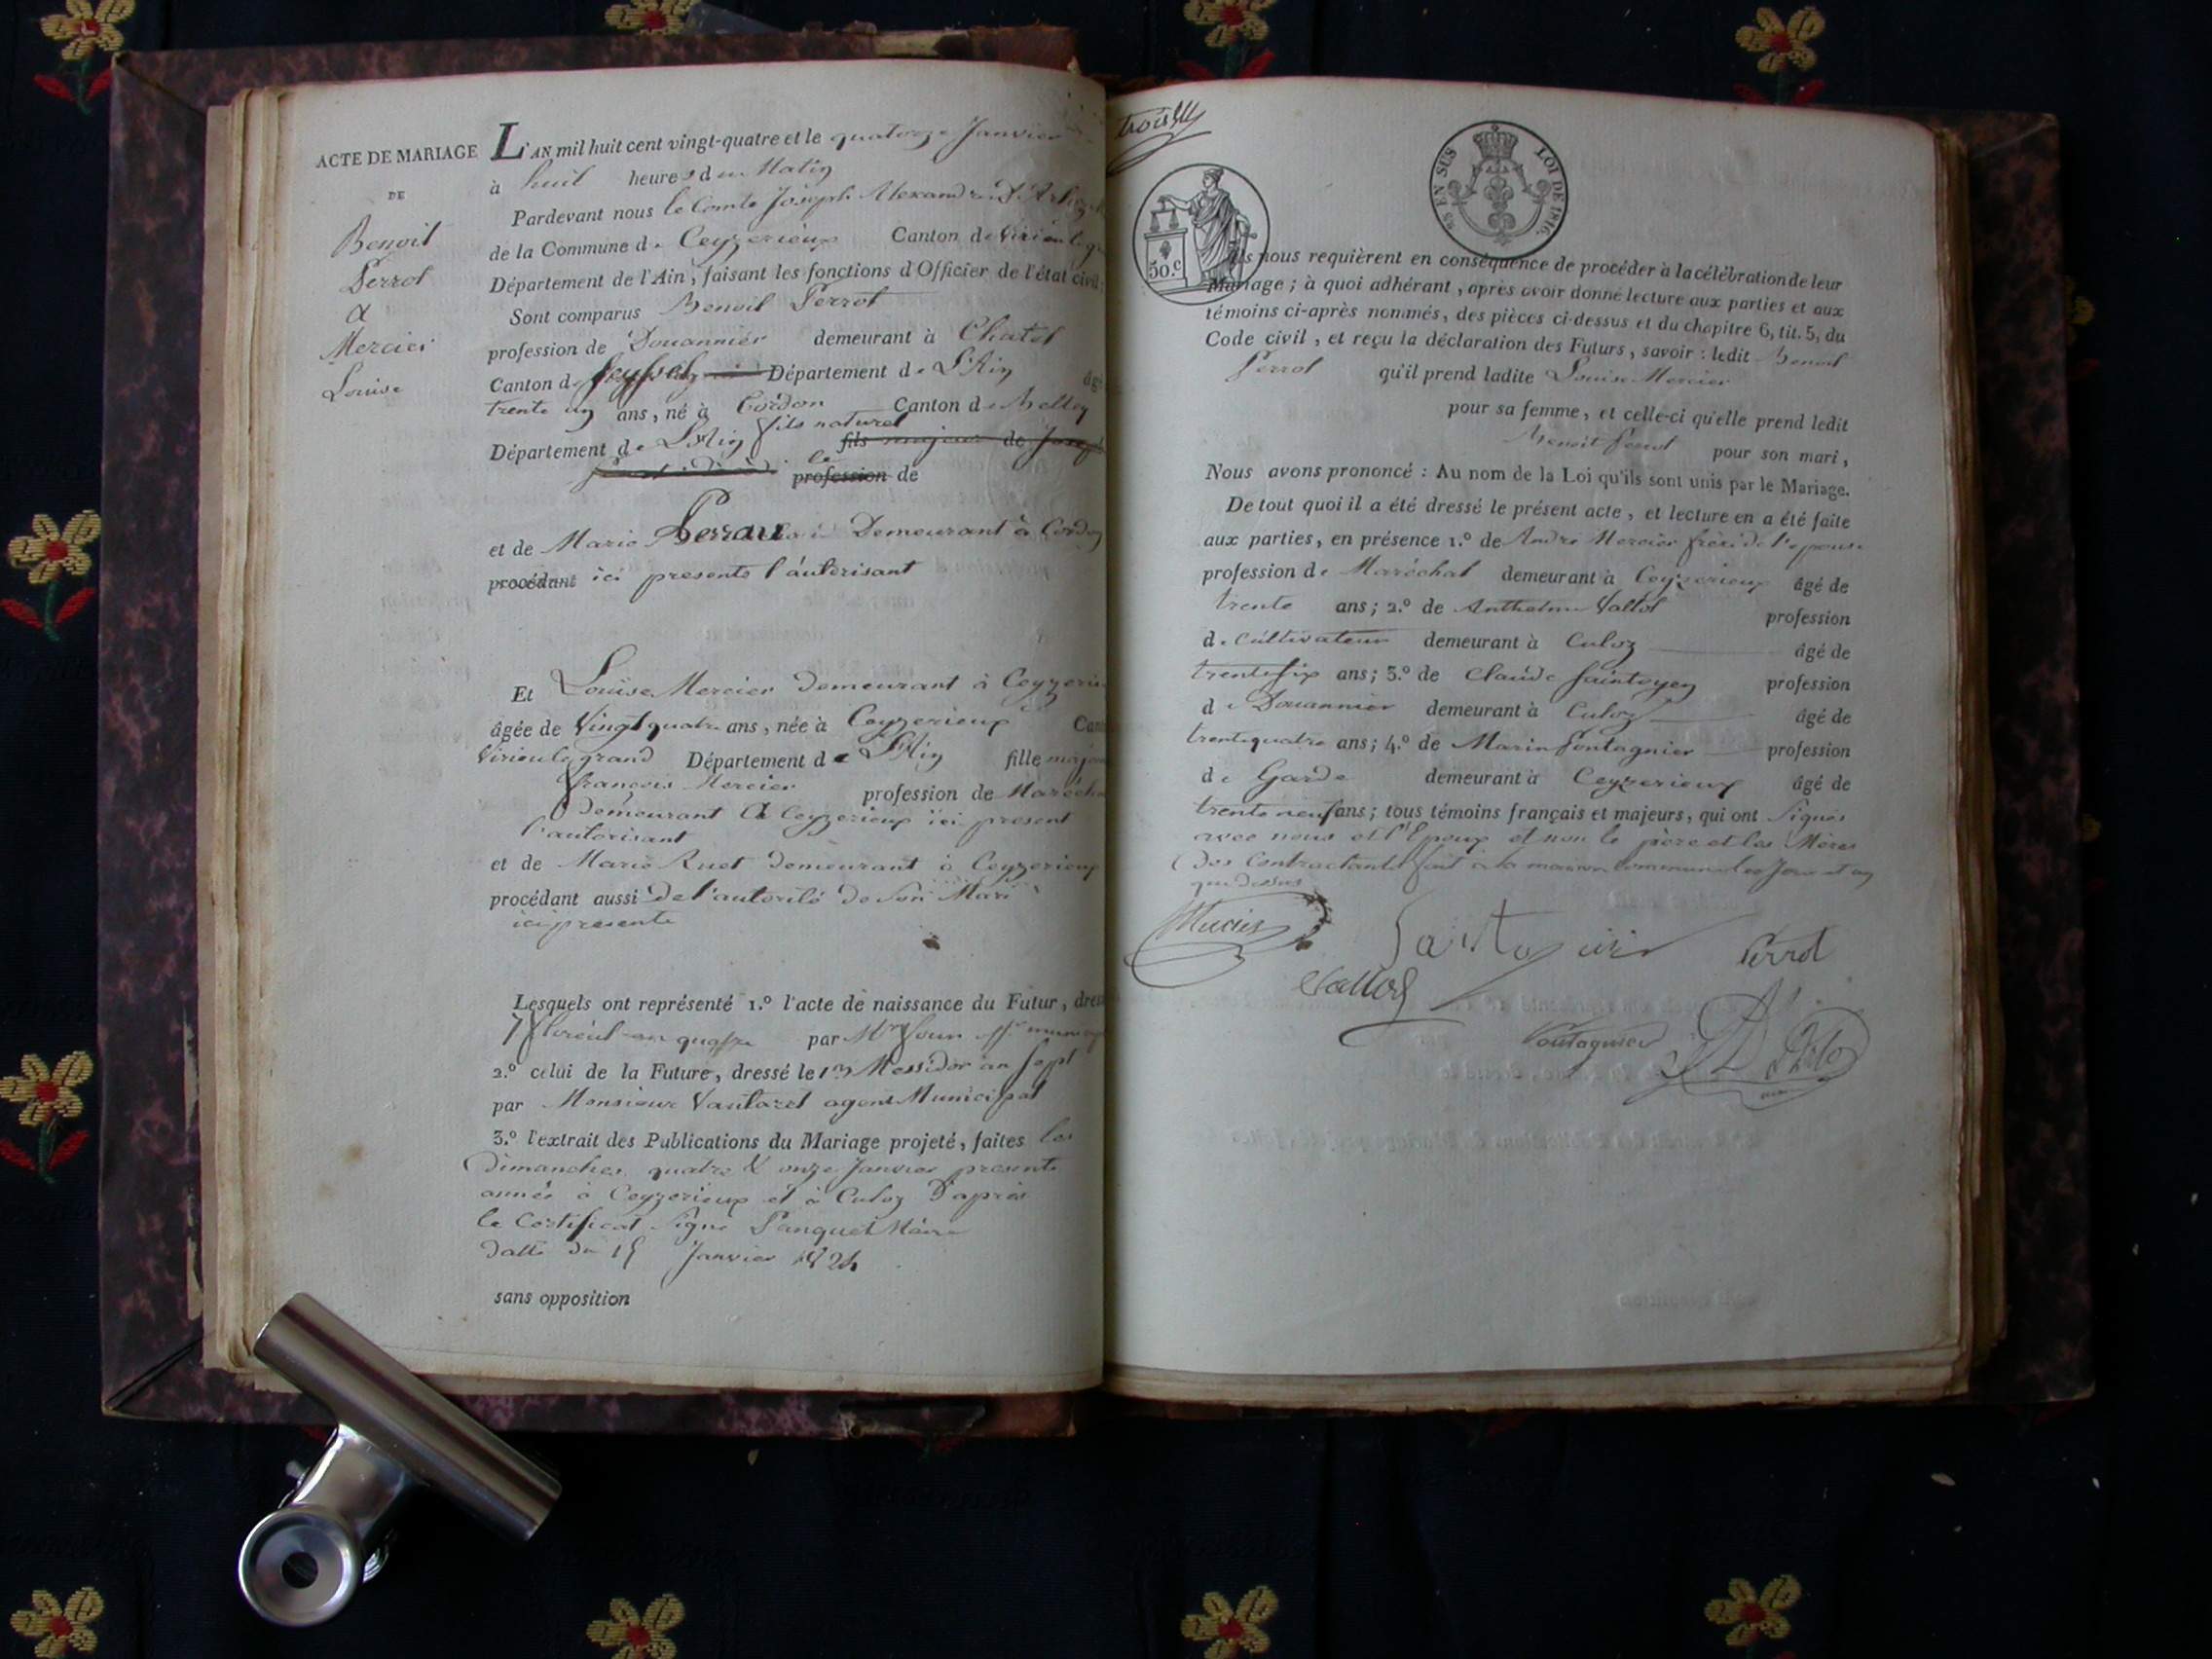 ACTE DE MARIAGE
DE
Benoit
Perrot
&
Mercier
Louise
L'AN mil huit cent vingt-quatre et le quatorze Janvier
à huit heures du Matin
Pardevant nous le Comte Joseph Alexandre
de la Commune de Ceyzerieux Canton de Virieu le
Département de l'Ain, faisant les fonctions d'Officier de l'état civil
Sont comparus Benoit Perrot
profession de Douannier demeurant à Chatel
Canton de Seyssel Département de L'Ain âgé
trente un ans, né à Cordon Canton de Belley
Département de L'Ain fils naturel
fils majeur de Joseph
le profession de
et de Marie Perrau Demeurant à Cordon
procédant ici presente l'autorisant
Et Louise Mercier Demeurant à Ceyzerie
âgée de Vingt quatre ans, née à Ceyzerieux Can
Virieu le grand Département de L'Ain fille maje
françois Mercier profession de Marécha
Demeurant A Ceyzerieux ici present
l'autorisant
et de Marie Ruet Demeurant à Ceyzerieux
procédant aussi De l'autorité De Son Mari
ici presente
Lesquels ont représenté 1.º l'acte de naissance du Futur, dres
7 floréal an quatre par Mr
2.º celui de la Future, dressé le 13 Messidor an sept
par Monsieur Vautaret agent Municipal
3.º l'extrait des Publications du Mariage projeté, faites les
Dimanches quatre & onze Janvier presente
année à Ceyzerieux et à Culoz D'après
le Certificat Signé Panquet Maire
Datté du 15 Janvier 1824
sans opposition
trois
50.c
EN SUS LOI DE 1816.
Ils nous requièrent en conséquence de procéder à la célébration de leur
Mariage; à quoi adhérant, après avoir donné lecture aux parties et aux
témoins ci-après nommés, des pièces ci-dessus et du chapitre 6, tit. 5, du
Code civil, et reçu la déclaration des Futurs, savoir: ledit Benoit
Perrot qu'il prend ladite Louise Mercier
pour sa femme, et celle-ci qu'elle prend ledit
Benoit Perrot pour son mari,
Nous avons prononcé: Au nom de la Loi qu'ils sont unis par le Mariage.
De tout quoi il a été dressé le présent acte, et lecture en a été faite
aux parties, en présence 1.º de André Mercier frère de l'epouse
profession de Maréchal demeurant à Ceyzerieux âgé de
trente ans; 2.º de Anthelme Vallod profession
de Cultivateur demeurant à Culoz âgé de
trente six ans; 3.º de Claude Saintoyen profession
de Douannier demeurant à Culoz âgé de
trente quatre ans; 4.º de Marin fontagnier profession
de Garde demeurant à Ceyzerieux âgé de
trente neuf ans; tous témoins français et majeurs, qui ont Signés
avec nous et l'Epoux et non le père et les Mères
Des Contractants fait à la maison Commune les Jour et an
que Dessus
Mercier
Perrot
Vallod
fontagnier